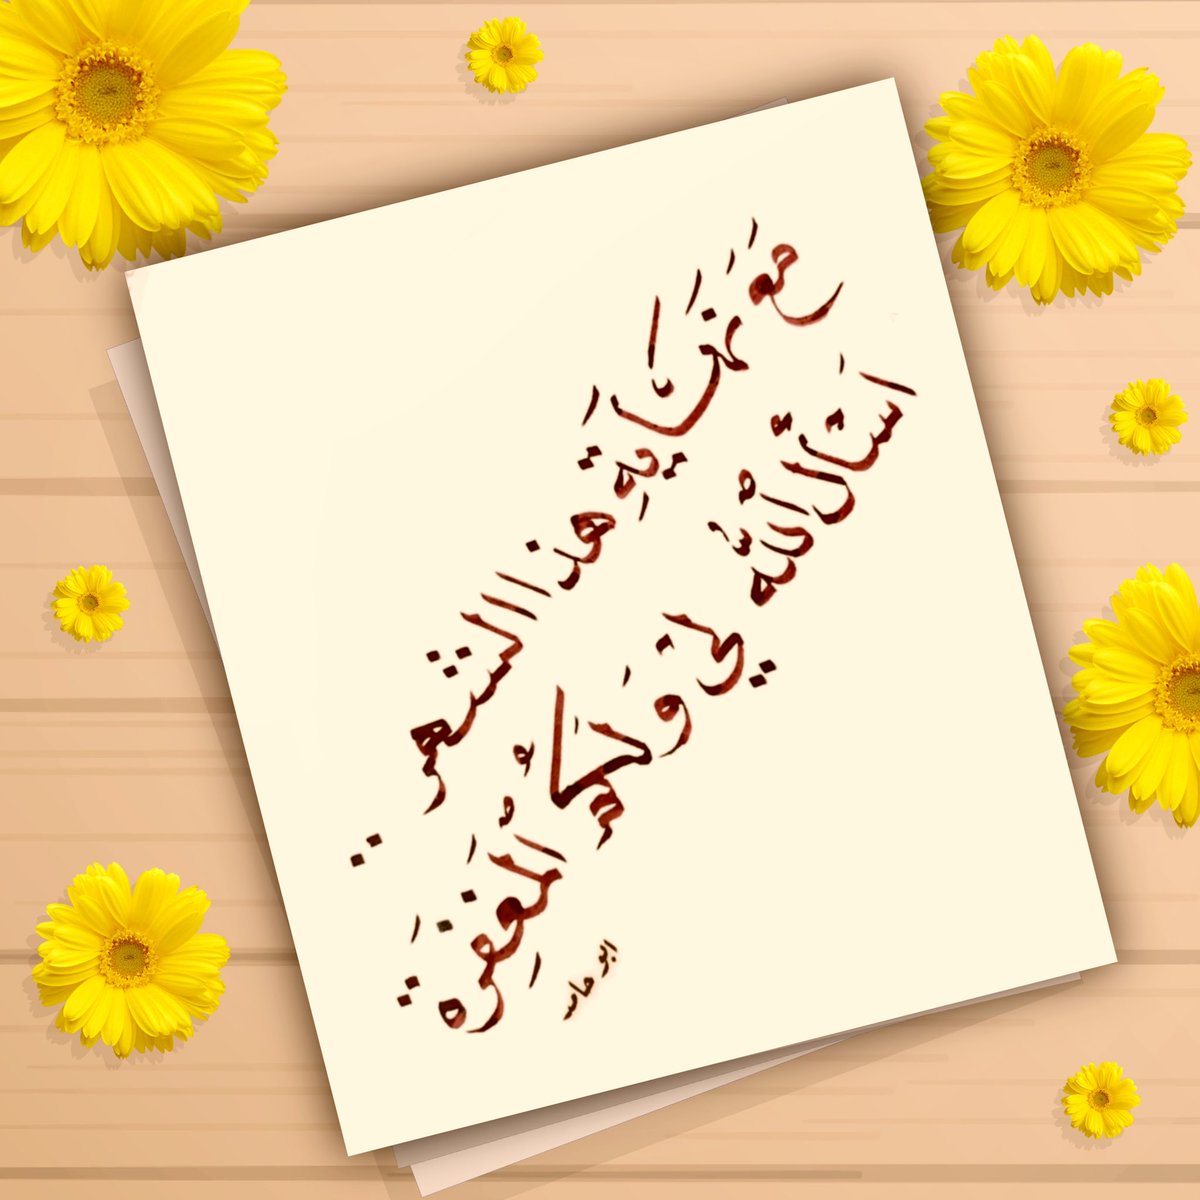 مَعَ نَهَايَةِ هذا الشهر ..
اَسْأَلُ اللهَ لي وَلَكُم المَغفِرَة
ابو حامد